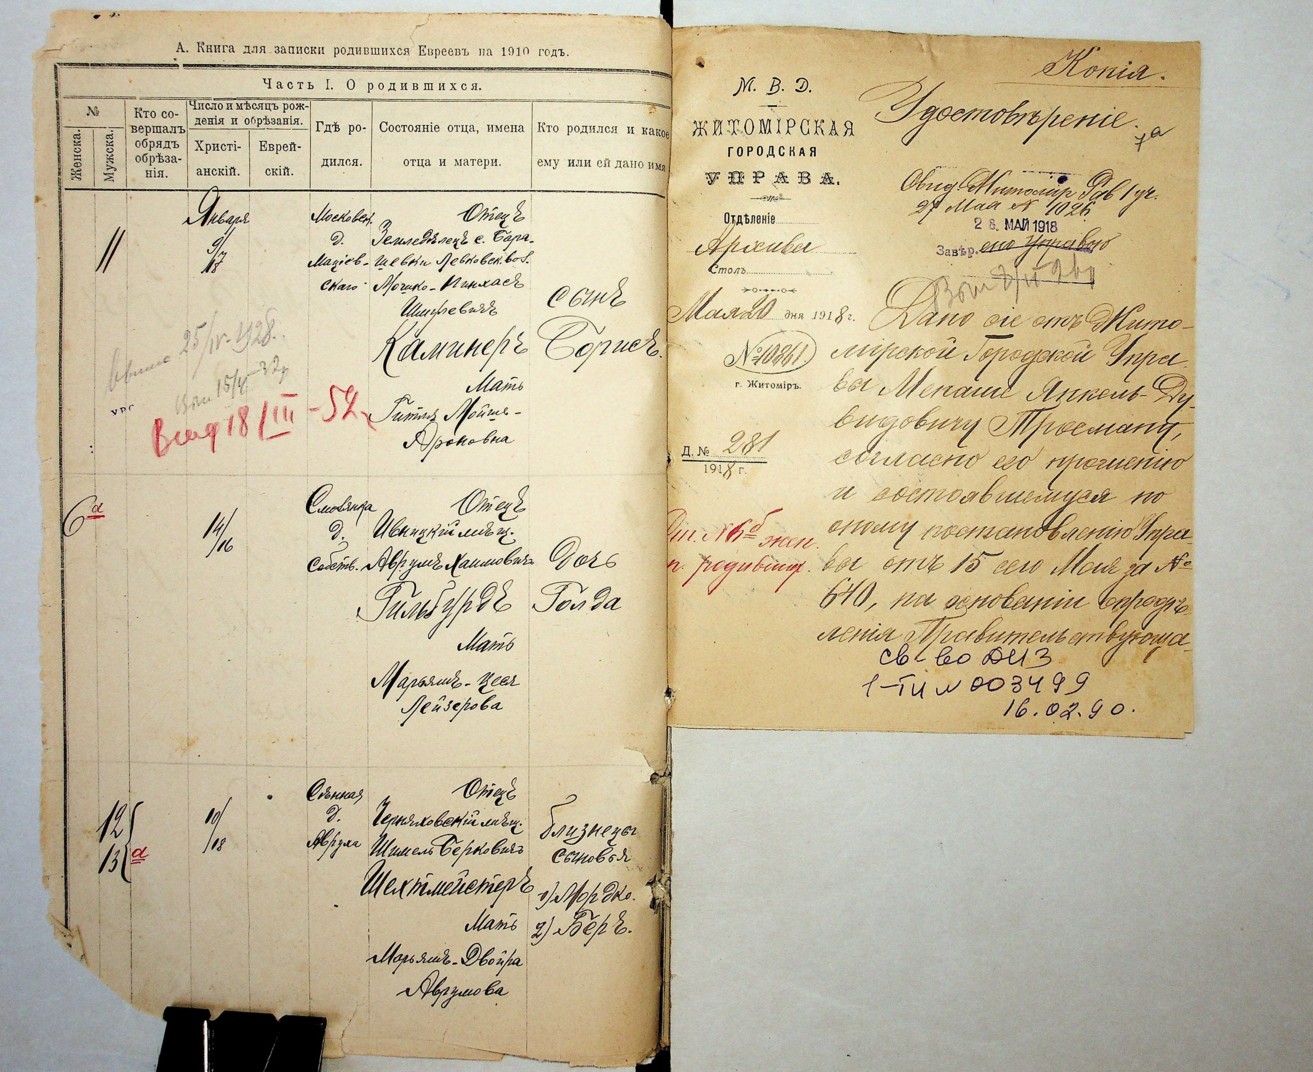 А. Книга для записки родившихся Евреевъ на 1910 годъ.
Часть I. О родившихся.
№
Женска.
Мужска.
Кто совершалъ обрядъ обрѣзанія.
Число и мѣсяцъ рожденія и обрѣзанія.
Христіанскій.
Еврейскій.
Гдѣ родился.
Состояніе отца, имена отца и матери.
Кто родился и какое ему или ей дано имя
11
Января
9/
Московск.
д.
Мацiев-
скаго
Отецъ
Земледѣлецъ с. Бара-
шевки Левковск. вол.
Мошко-Пинхасъ
Каминеръ
Мать
Гитля Мойше-
Ароновна
сынъ
Борисъ.
25/IV-1928.
15/
18/III-52
6
а
14/16
д.
собств.
Отецъ
Ивницкій мѣщ.
Аврумъ Хаимовичъ
Гильбурдъ
Мать
Марьямъ-Цеся
Лейзерова
Дочь
Голда
12
13
а
10/18
Сѣнная
д.
Аврума
Отецъ
Черняховскій мѣщ.
Шмель Берковичъ
Шехтмейстеръ
Мать
Марьямъ-Двойра
Аврумова
близнецы
сыновья
1) Мордко.
2) Беръ.
Копія.
М. В. Д.
ЖИТОМІРСКАЯ
ГОРОДСКАЯ
УПРАВА.
Отдѣленіе
Архива
Столъ
Мая 20 дня 1918 г.
№ 10861
г. Житоміръ.
Д. № 281
1918 г.
№ 6 жен.
родивших.
Удостовѣреніе.
27 Мая № 1026
26 МАЙ 1918
Завѣр.
Дано сіе отъ Жито-
мірской Городской Упра-
вы Менаше Янкель-Ду-
видовичу Тросману,
согласно его прошенію
и состоявшемуся по
оному постановленію Упра
вы отъ 15 сего Мая за №
640, на основаніи опредѣ-
ленія Правительствующа-
св-во ДИЗ
1-ТИ № 003499
16.02.90.